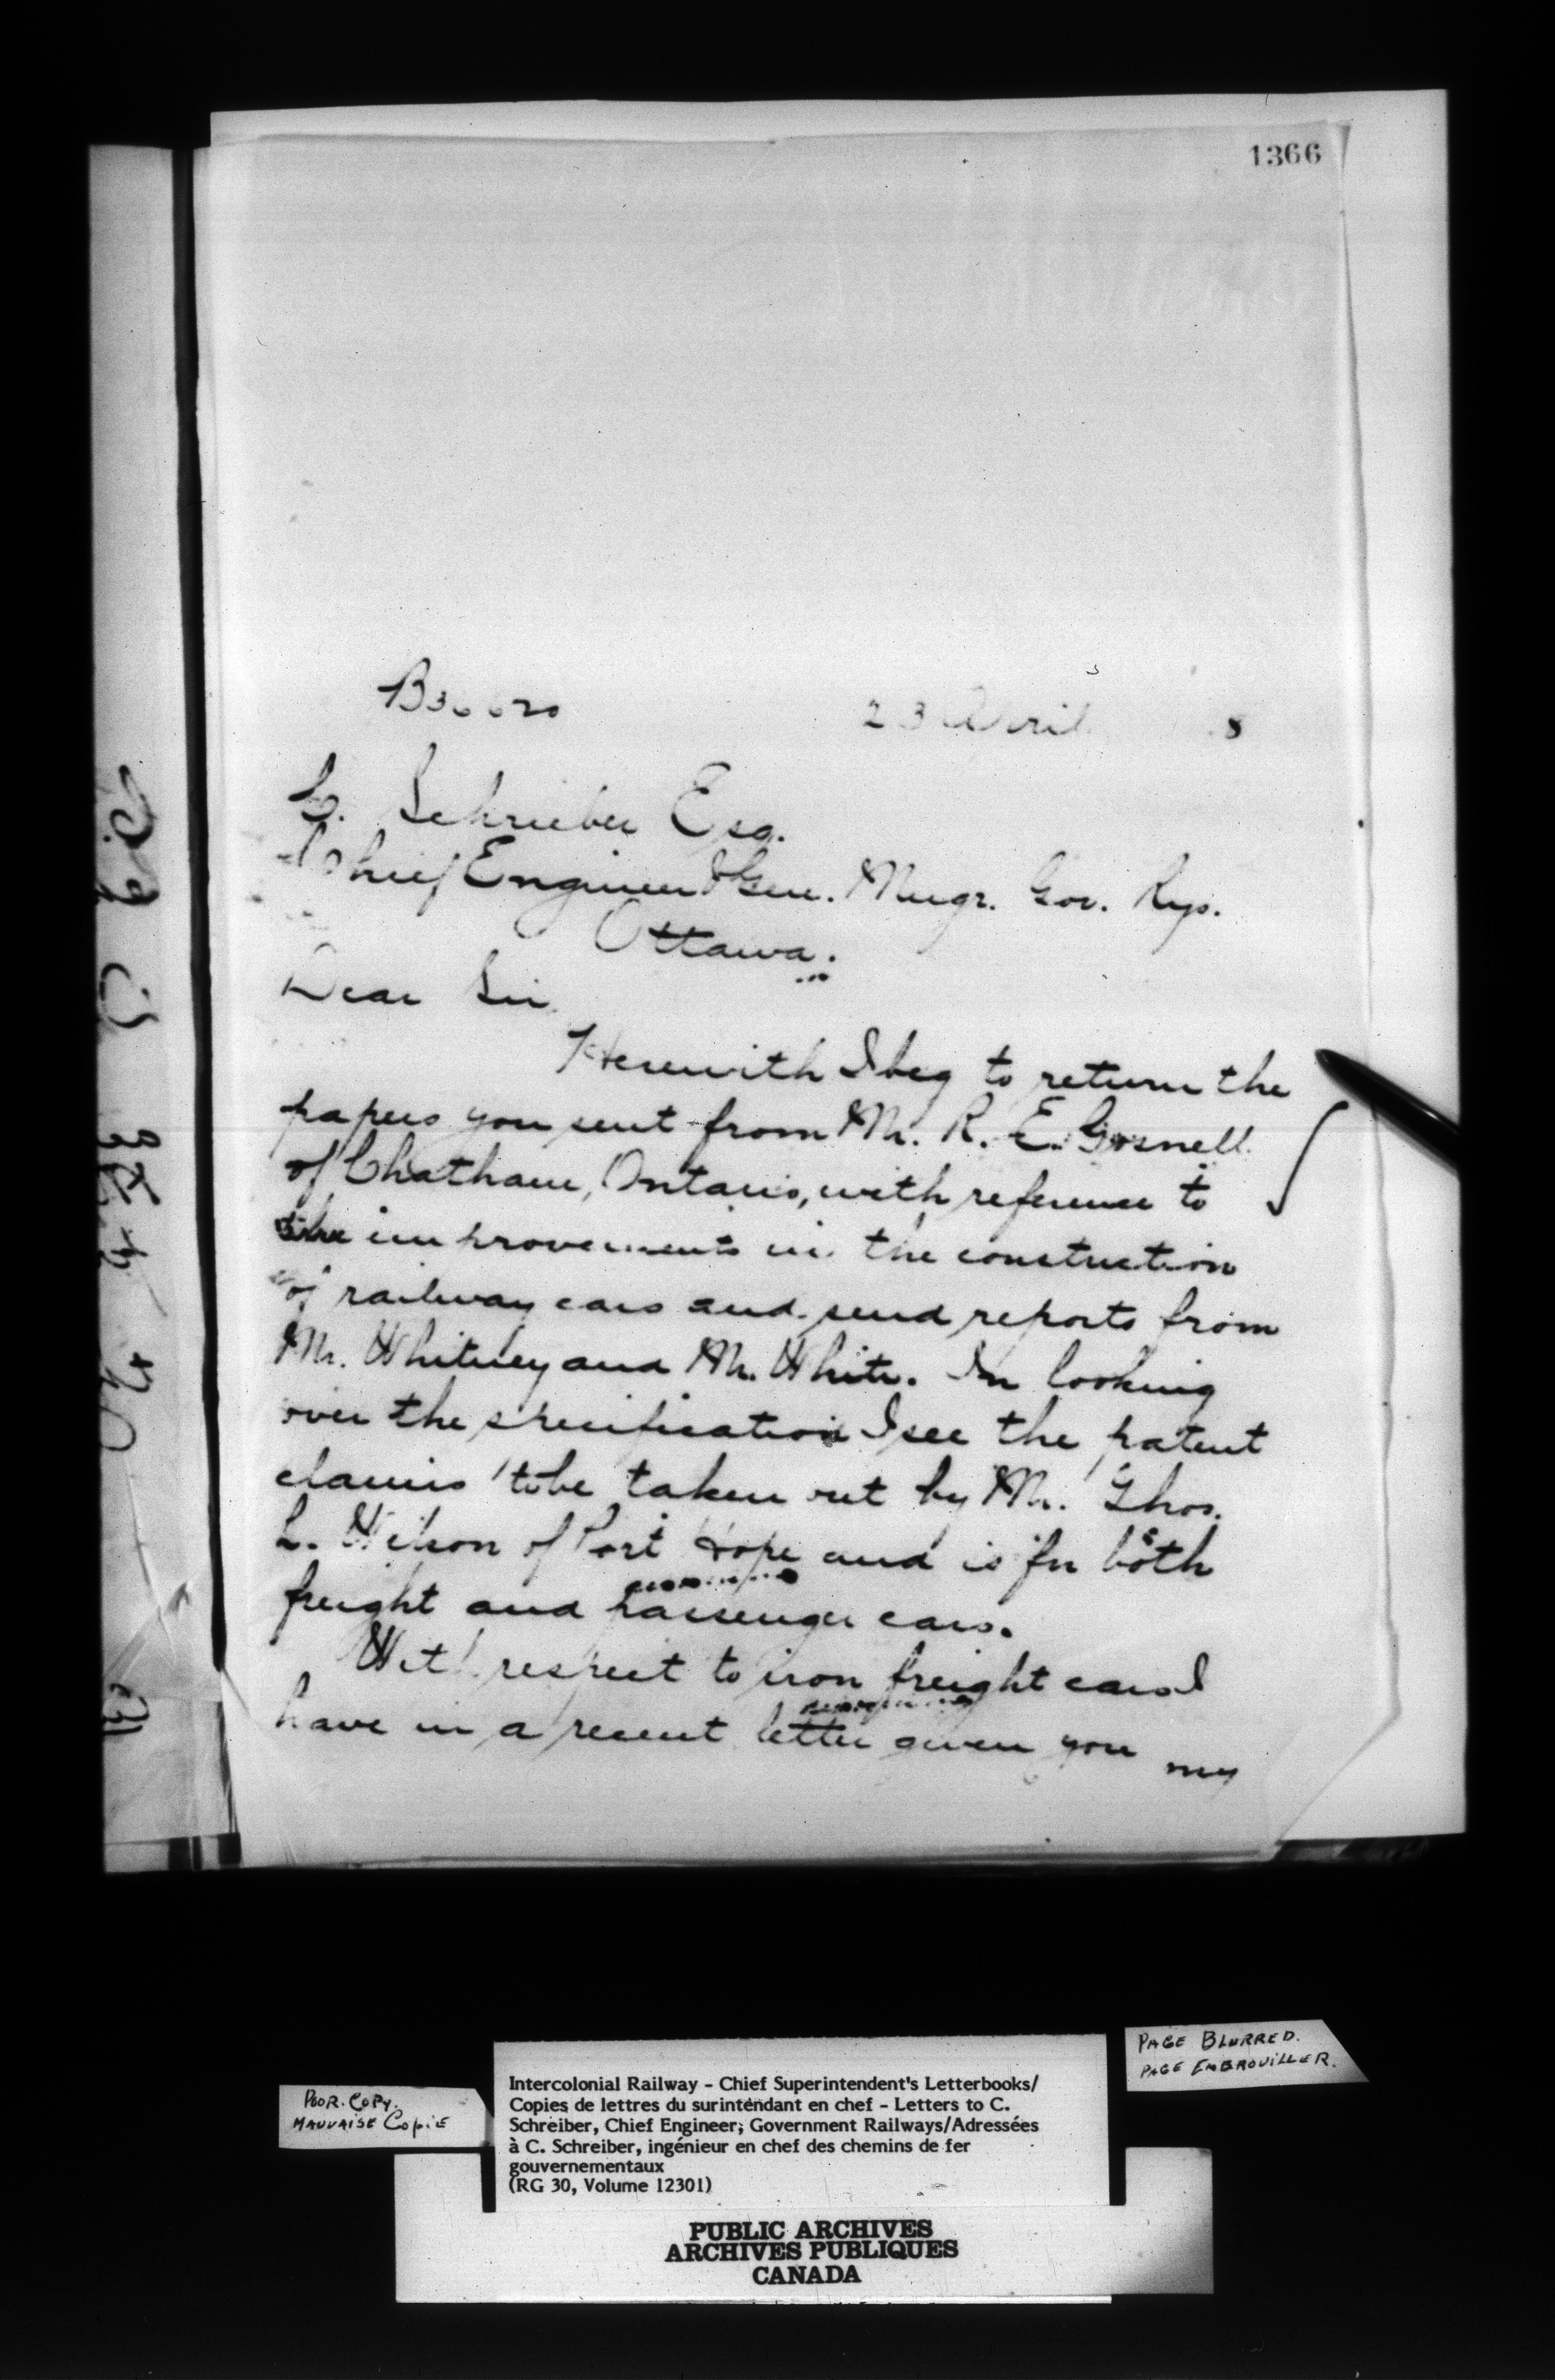 1366
B36620
23 April 8
C. Schrieber Esq.
Chief Engineer & Gen. Mngr. Gov. Rys.
Ottawa.
Dear Sir
Herewith I beg to return the
papers you sent from Mr. R. E. Gosnell
of Chatham, Ontario, with reference to
the improvements in the constuction
of railway cars and send reports from
Mr. Whitney and Mr. White. In looking
over the specification I see the patent
claims to be taken out by Mr. Thos.
L. Wilson of Port Hope and is for both
freight and passenger cars.
With respect to iron freight cars I
have in a recent letter given you my
POOR. COPY.
MAUVAISE COPIE
PAGE BLURRED.
PAGE EMBROUILLER.
Intercolonial Railway - Chief Superintendent's Letterbooks/
Copies de lettres du surintendant en chef - Letters to C.
Schreiber, Chief Engineer, Government Railways/Adressées
à C. Schreiber, ingénieur en chef des chemins de fer
gouvernementaux
(RG 30, Volume 12301)
PUBLIC ARCHIVES
ARCHIVES PUBLIQUES
CANADA